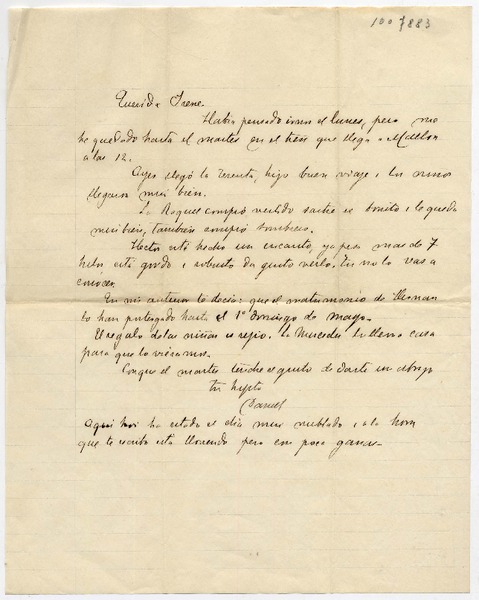 1007883
Querida Irene.
Había pensado irme el lunes, pero me
he quedado hasta el martes en el tren que llega a
a las 12.
Ayer llegó la Teresita, hizo buen viaje i los niños
llegaron mui bien.
La Raquel compró vestido sastre es bonito i le queda
mui bien, también compró sombrero.
Hector está hecho un encanto, ya pesa mas de 7
kilos está gordo i robusto da gusto verlo. Tu no lo vas a
conocer.
En mi anterior te decia que el matrimonio de Hernan
lo han postergado hasta el 1º domingo de mayo.
El regalo de las niñas es rejio. La Mercedes lo llevó a casa
para que lo vieramos.
Conque el martes tendré el gusto de darte un abrazo
Tu hijito
Daniel
Aqui hoi ha estado el dia mui nublado, i a la hora
que te escribo está lloviendo pero con poca ganas.